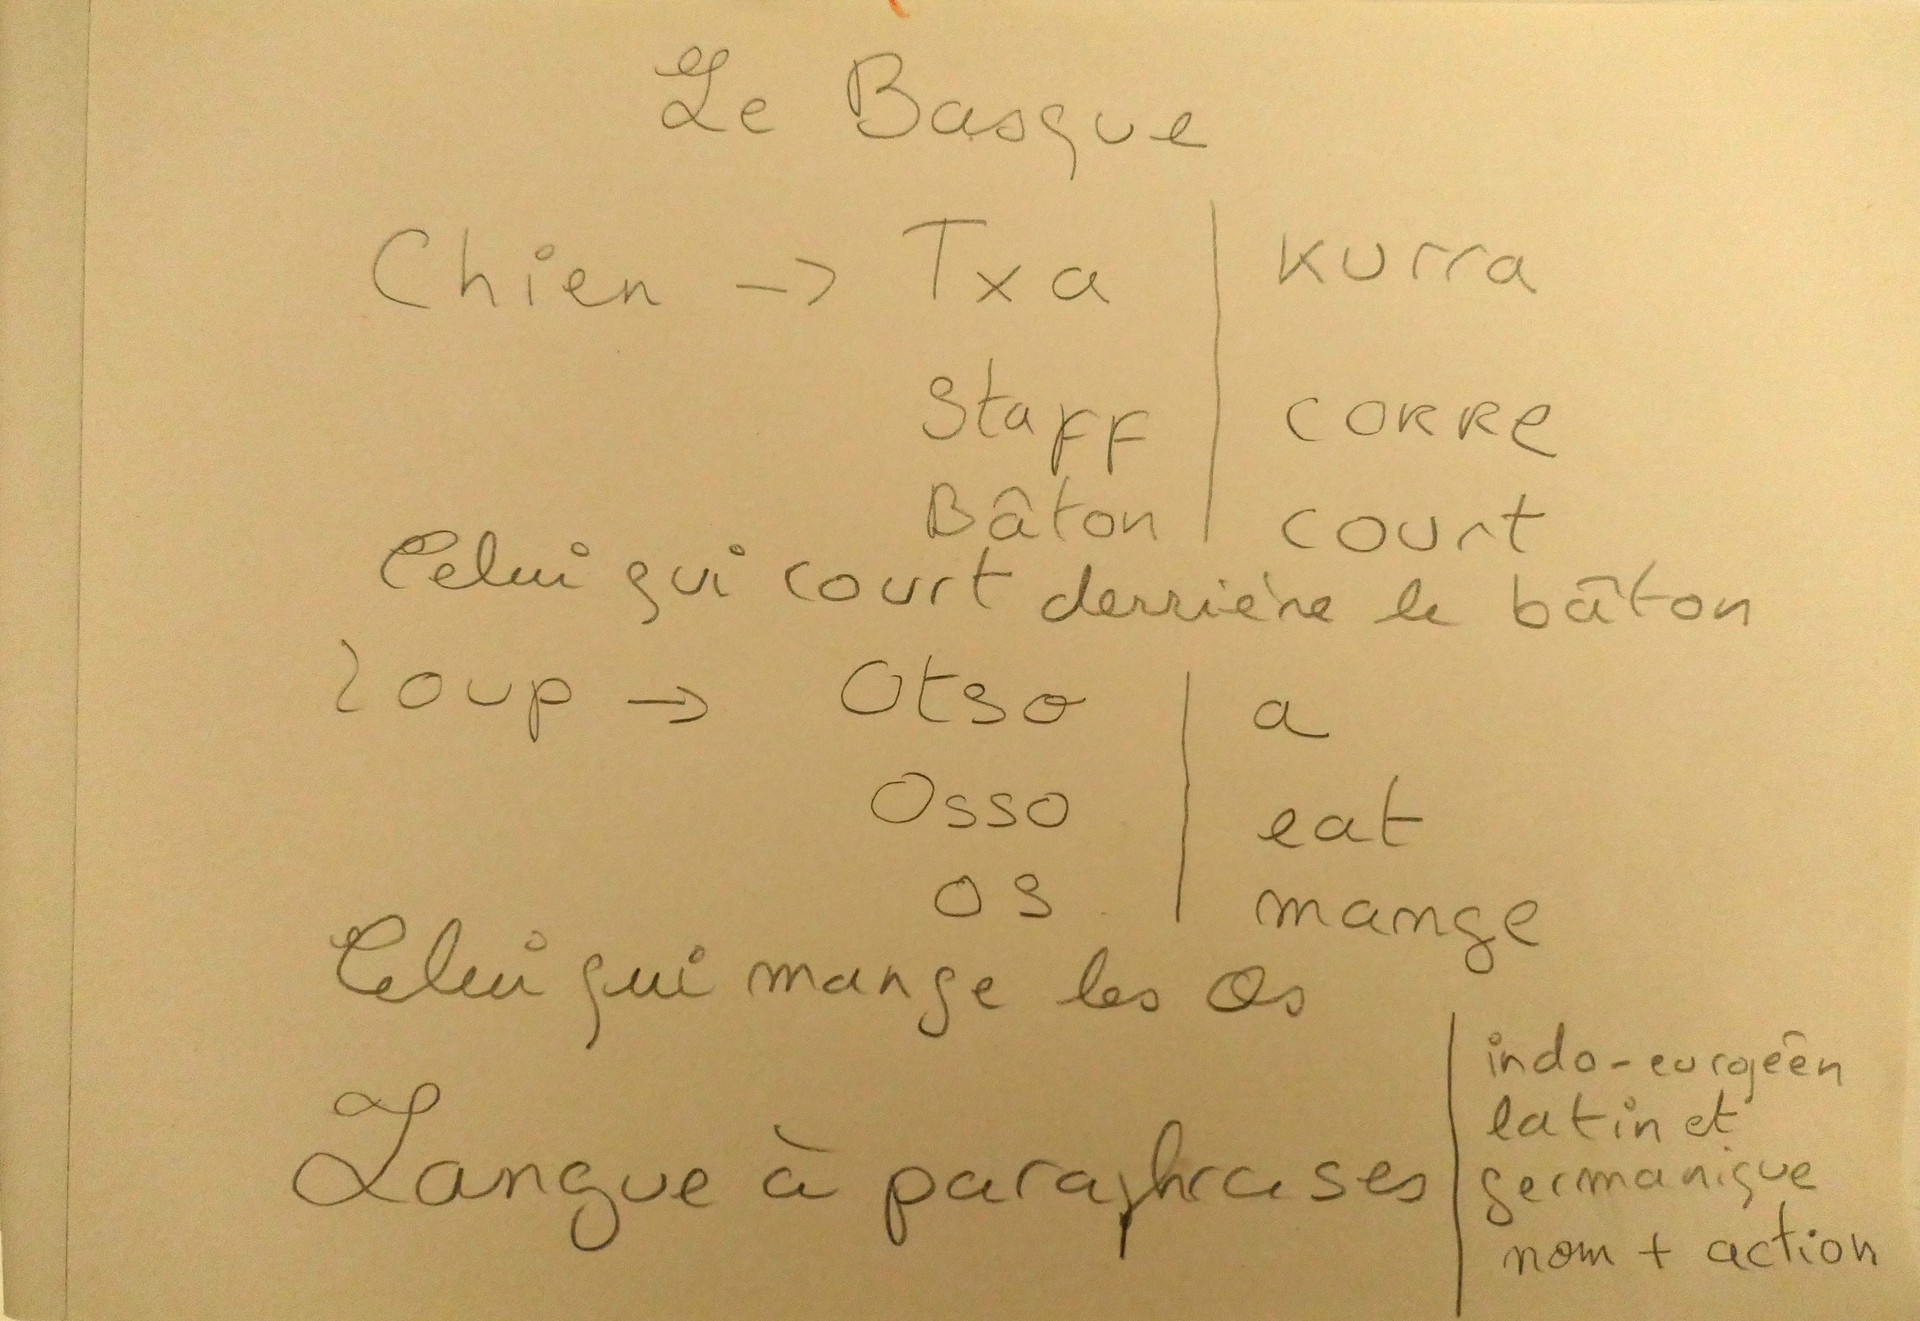 Le Basque
Chien -> Txa | kurra
Staff | CORRe
Bâton | court
Celui qui court derrière le bâton
Loup -> Otso | a
Osso | eat
os | mange
Celui qui mange les os
Langue à paraphrases
indo-européen
latin et
germanique
nom + action